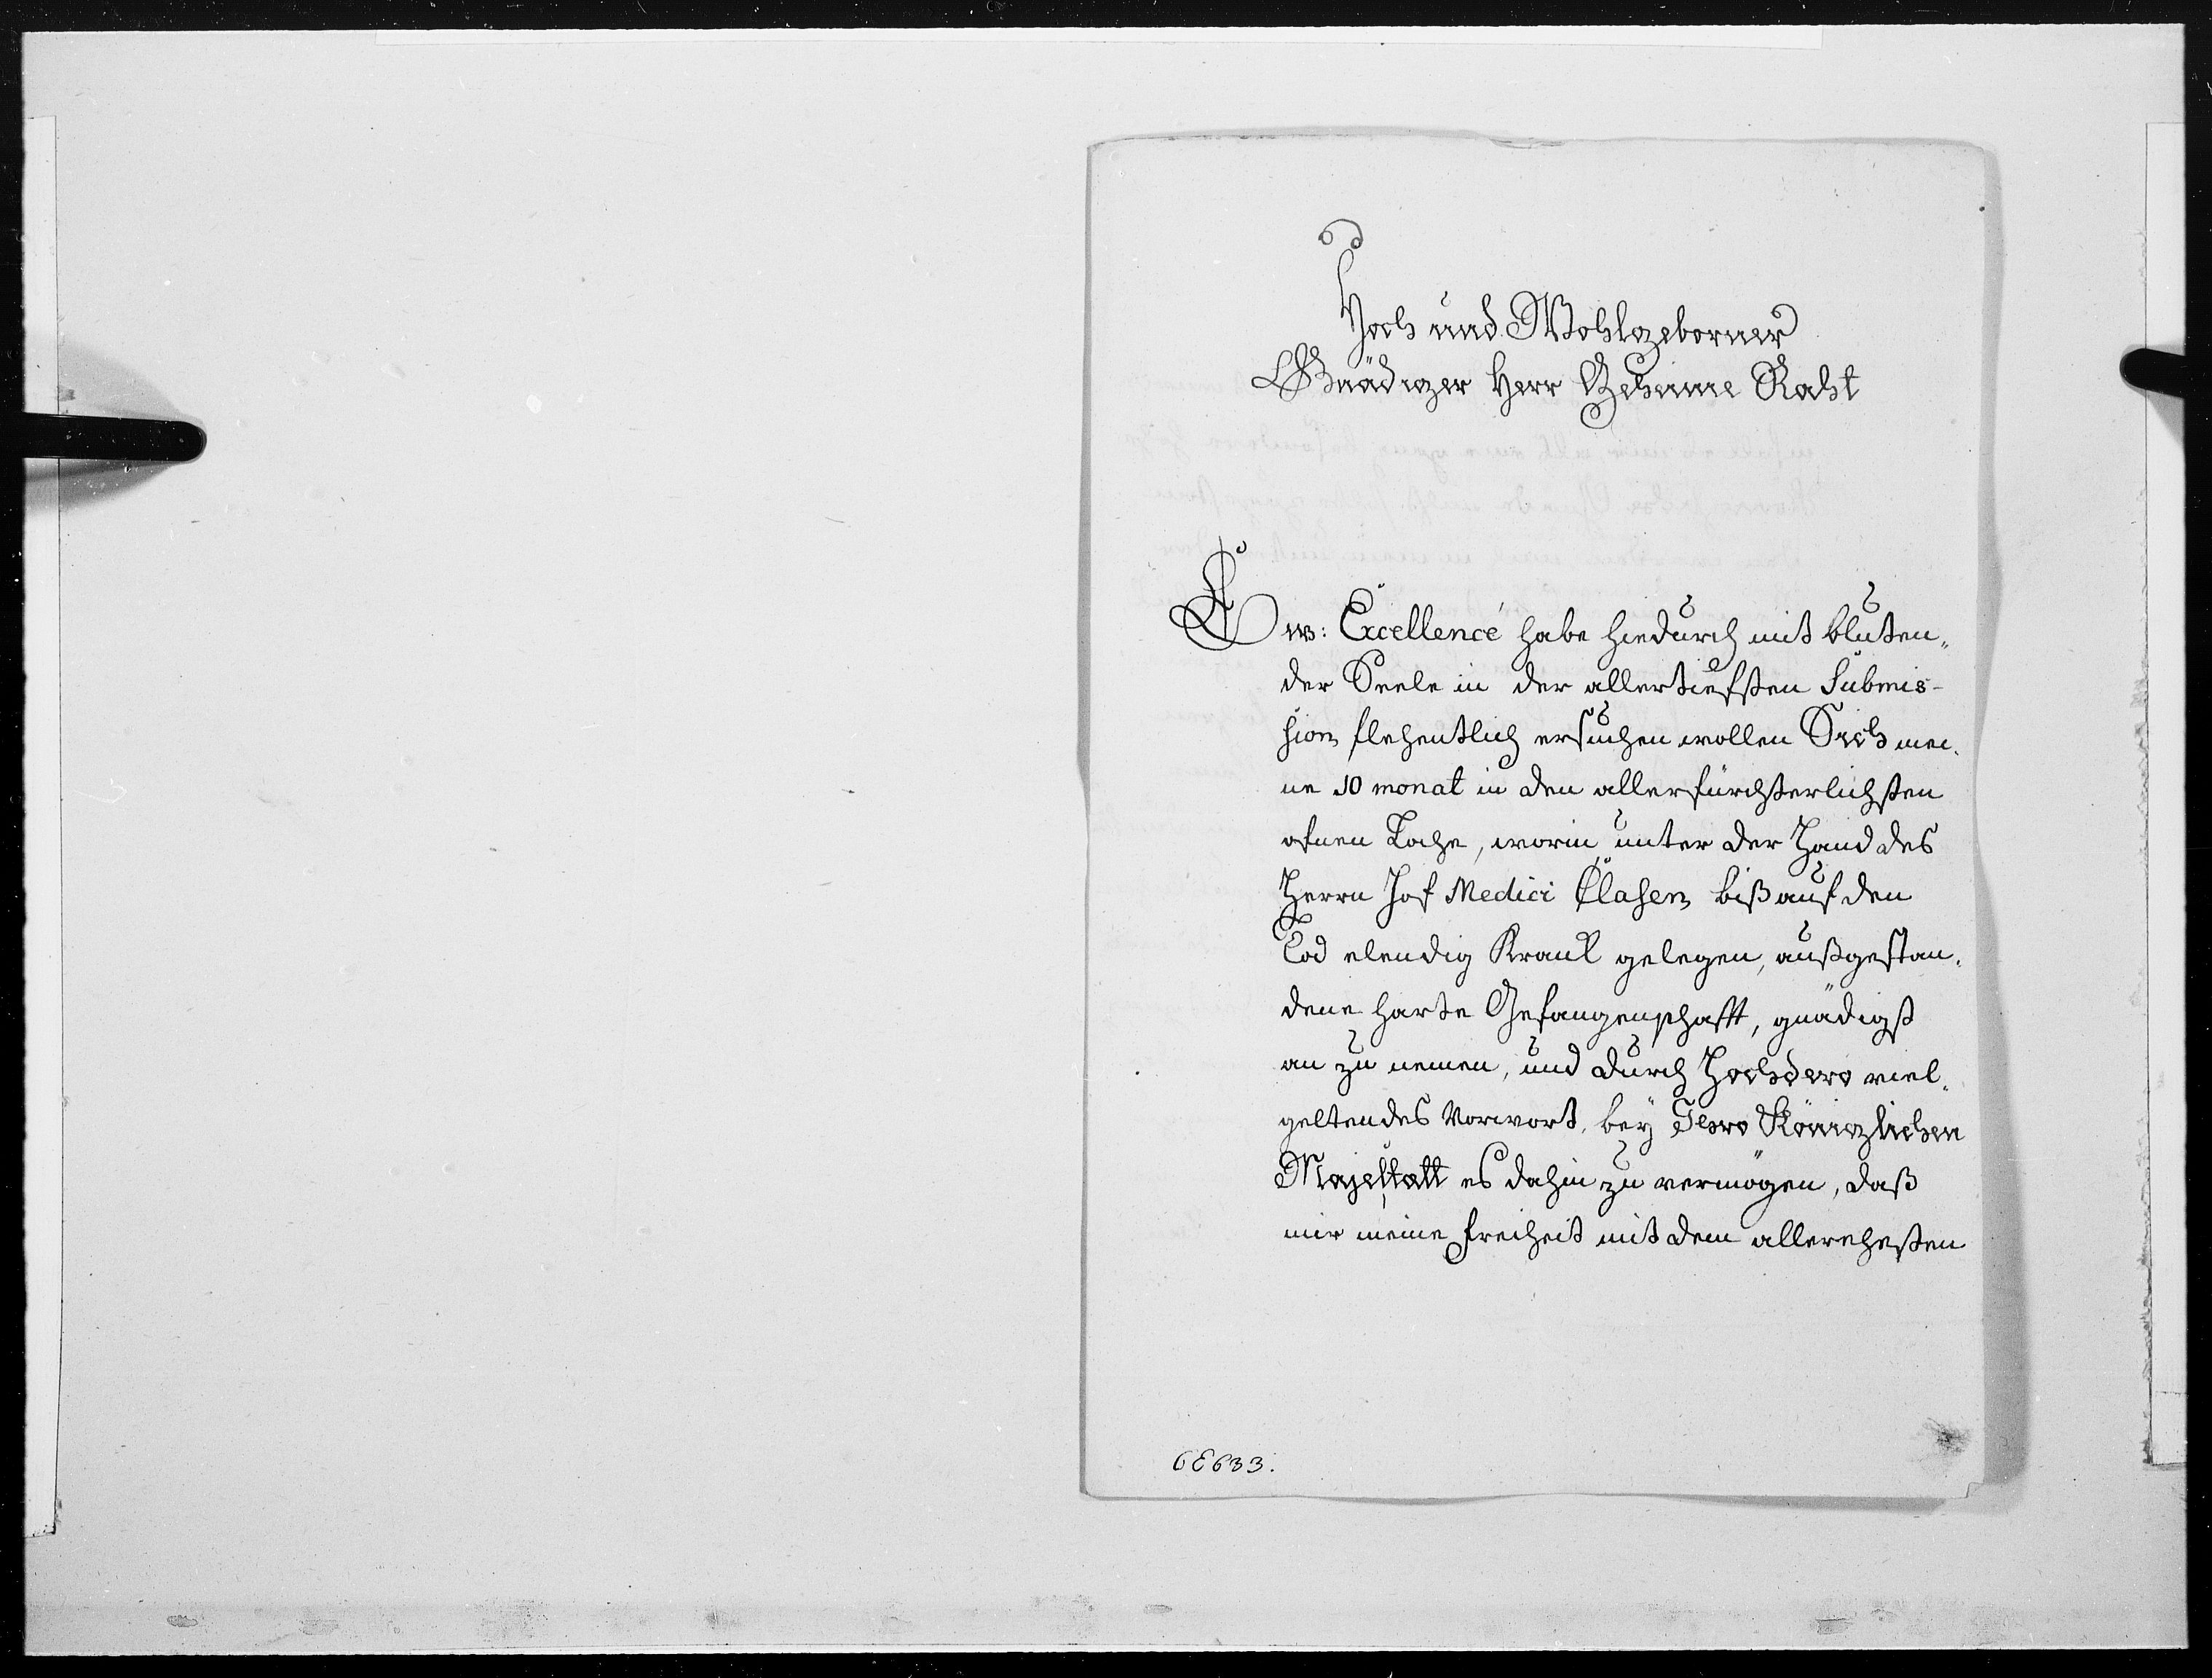 Hoch und Wohlgeborner
Gnädiger Herr Geheime Raht
Ew: Excellence habe hiedurch mit bluten„
der Seele in der allertiefsten Submis-
sion flehentlich ersuchen wollen Sich mei„
ne 10 monat in den allerfürchterlichsten
ofnen Loche, worin unter der Hand des
Herrn Hof Medici Clasen biß auf den
Tod elendig Krank gelegen, außgestan„
dene harte Gefangenschafft, gnädigst
an zu nemen, und durch Hochdero viel„
geltendes Vorwort, bey Ihro Königlichen
Majestätt es dahin zu vermögen, daß
mir meine freiheit mit dem allerehesten
66633.